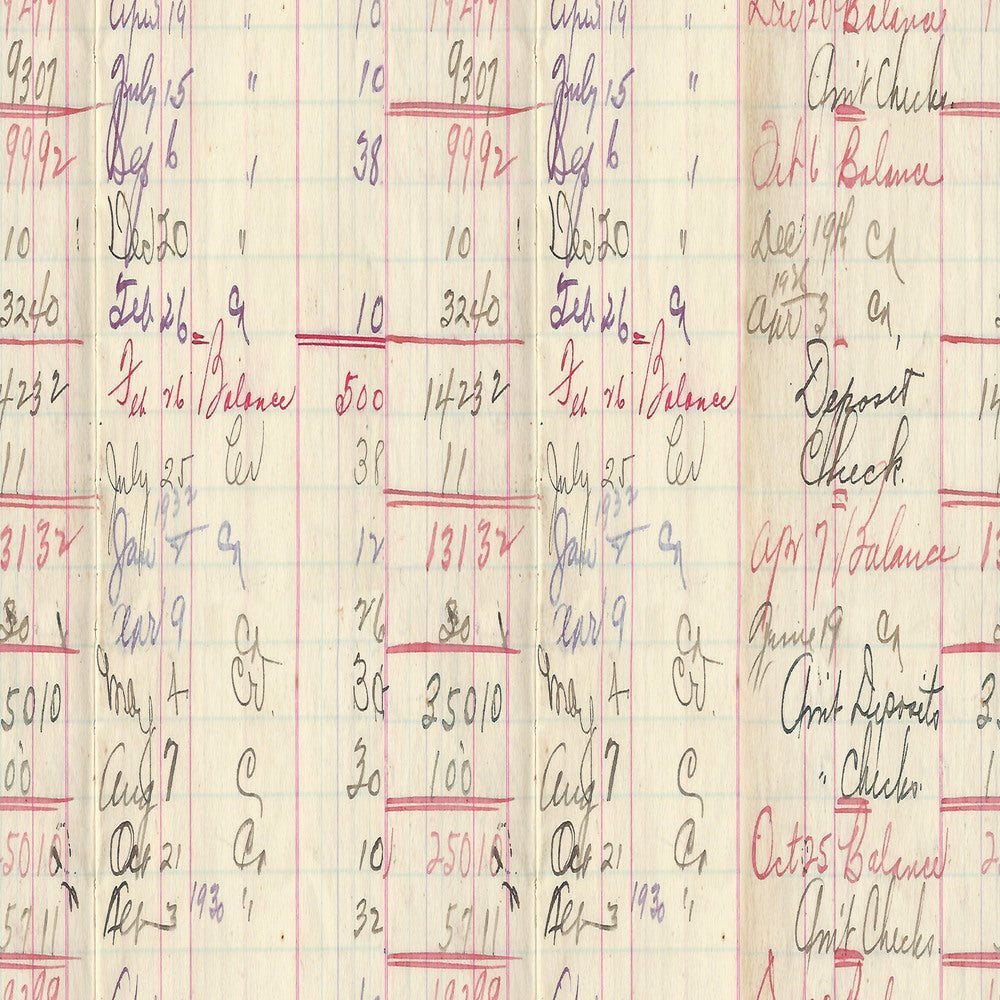 19299 April 19 " 10 19299 April 19 " Dec 20 Balance
9307 July 15 " 10 9307 July 15 " Am't Checks.
9992 Sep 6 " 38 9992 Sep 6 " Oct 6 Balance
10 Dec 20 " 10 Dec 20 " Dec 19th Cr
3240 Feb 26 Cr 10 3240 Feb 26 Cr Apr 3 Cr
4232 Feb 26 Balance 500 14232 Feb 26 Balance Deposit 14
11 July 25 38 11 July 25 Check.
1932 1932
3132 Jan Cr 12 13132 Jan Cr Apr 7 Balance 13
Apr 9 Cr 26 Apr 9 Cr June 19 Cr
5010 May 4 Cr. 30 35010 May 4 Cr. Am't Deposits 3
00 Aug 7 C 30 100 Aug 7 C " Checks. 1
5010 Oct 21 Cr 10 25010 Oct 21 Cr Oct 25 Balance 2
5711 3 1930 " 32 5711 3 1930 " Am't Checks.
19299